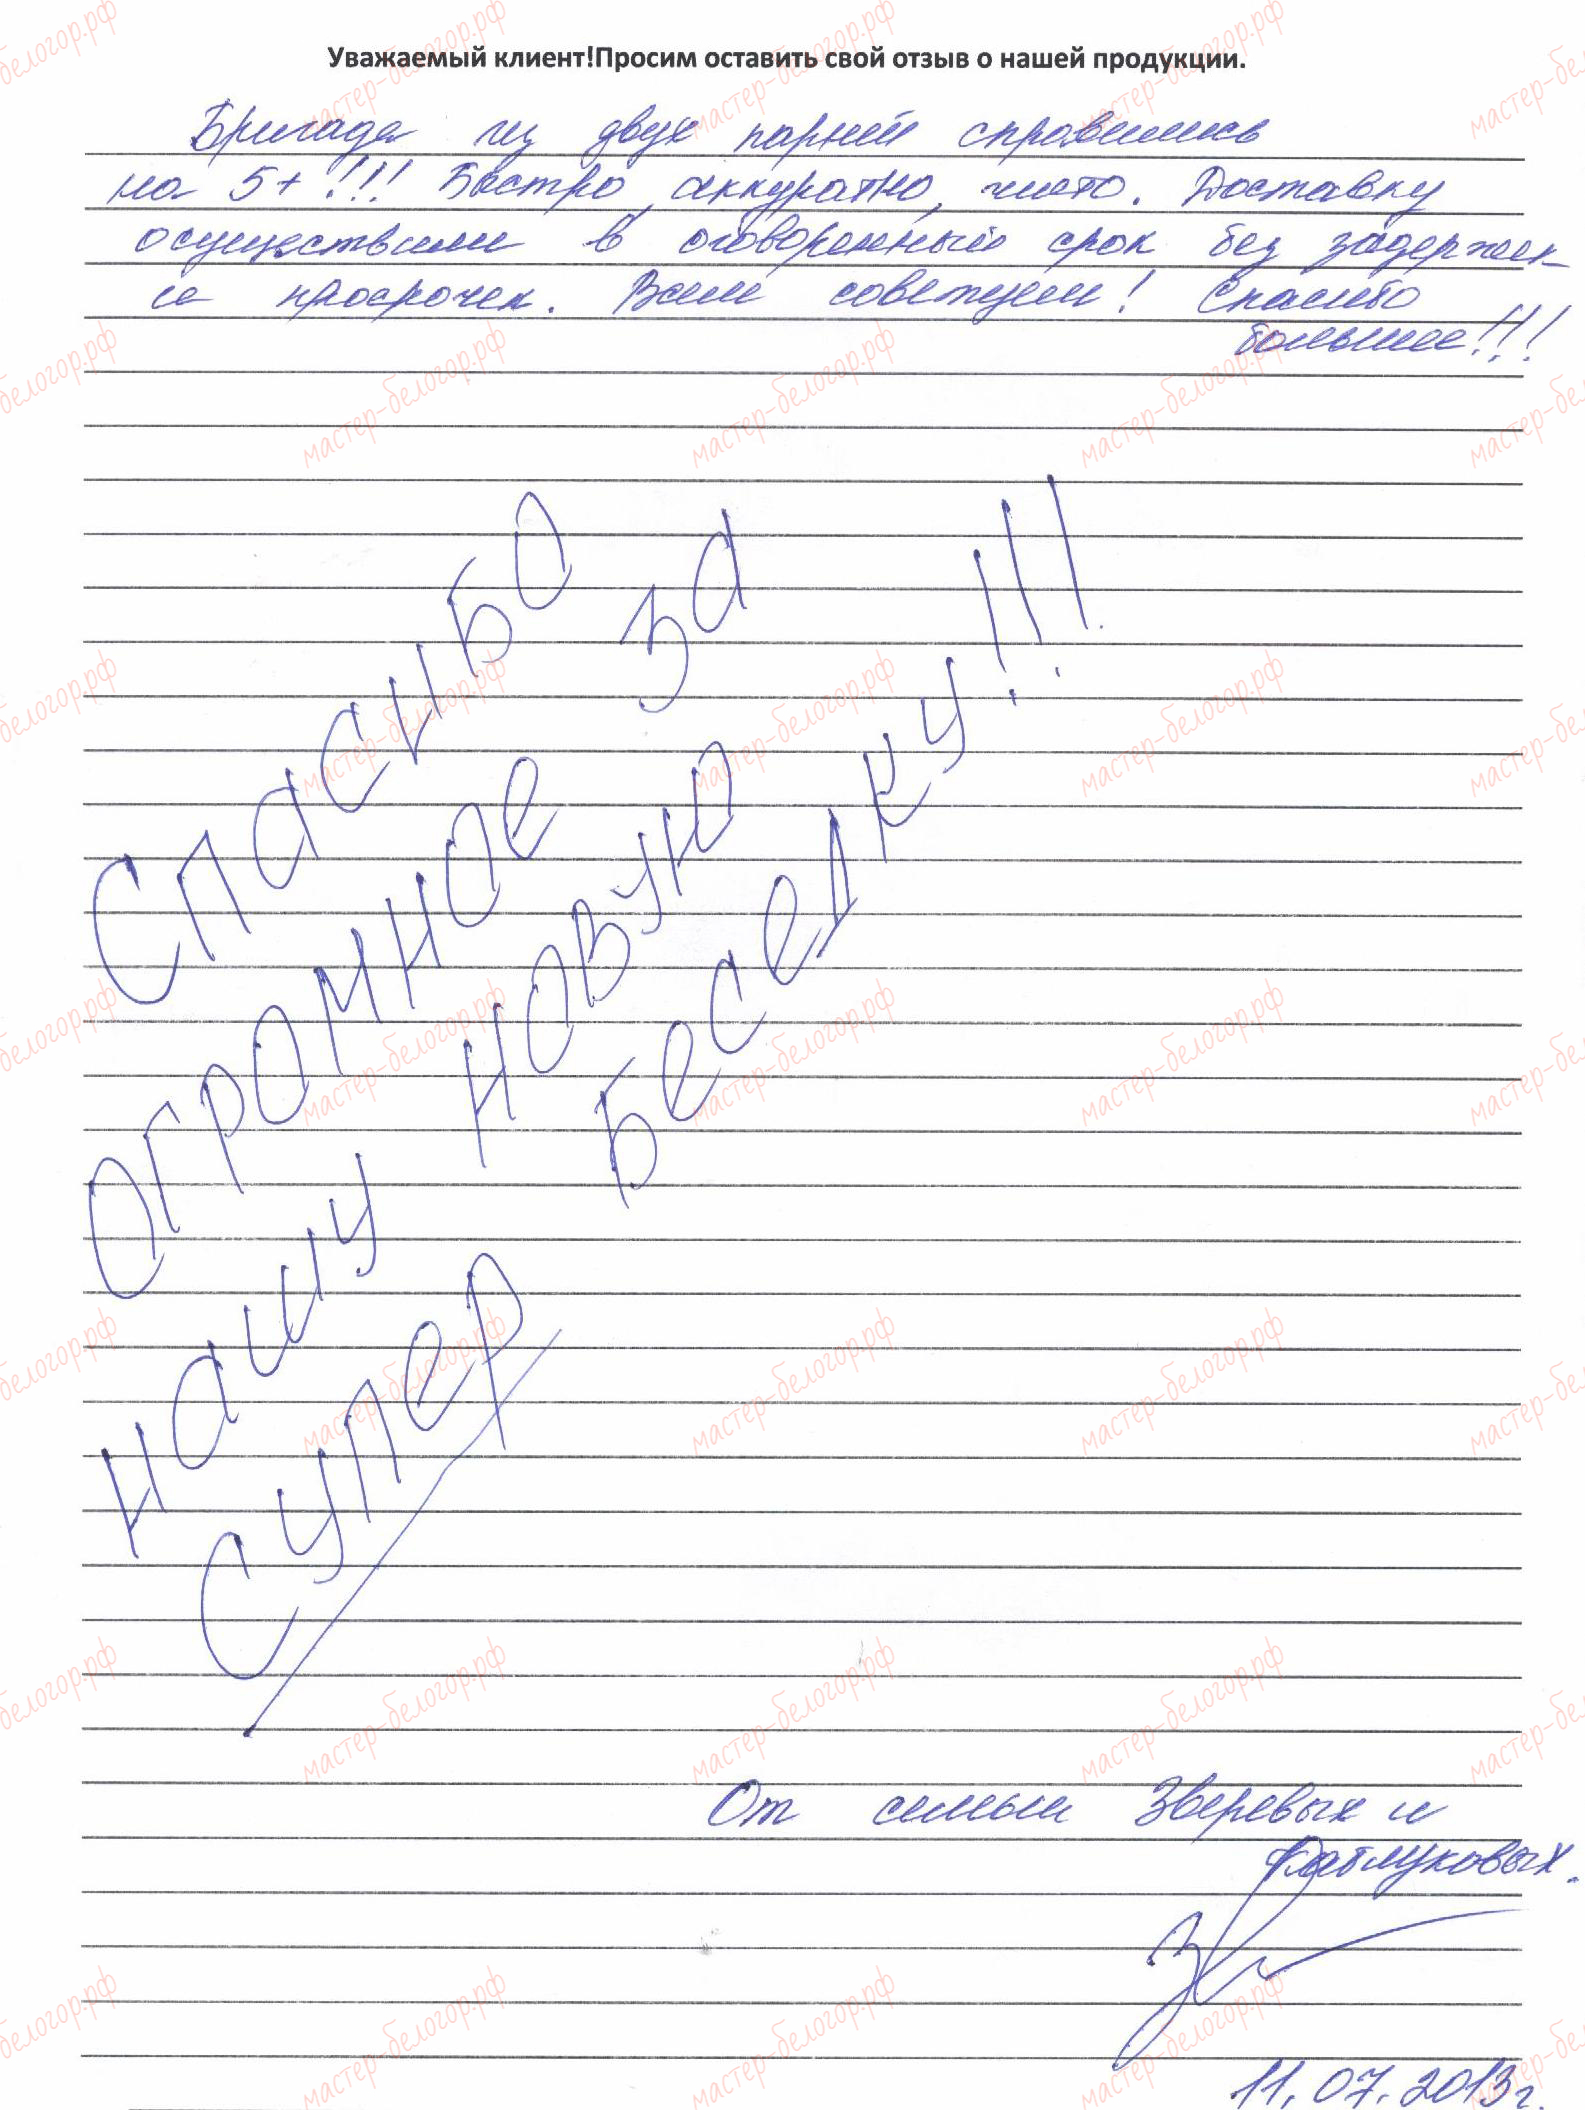 Уважаемый клиент!Просим оставить свой отзыв о нашей продукции.
Бригада из двух парней справились
на 5+!!! Быстро, аккуратно, чисто. Доставку
осуществили в оговоренный срок без задержек
и просрочек. Всем советуем! Спасибо
большое!!!
Спасибо
огромное за
нашу новую
беседку!!!
Супер
От семьи Зверевых и
11.07.2013г.
мастер-белогор.рф